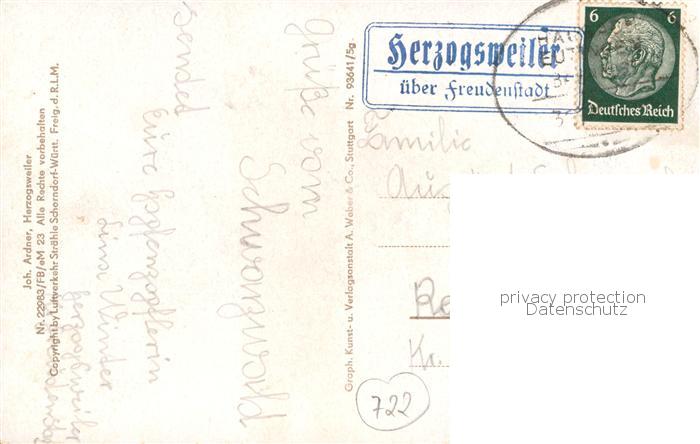 Joh. Ardner, Herzogsweiler
Nr. 22963/FB/eM 23 Alle Rechte vorbehalten
Copyright by Luftverkehr Strähle Schorndorf-Württ. Freig. d. R.L.M.
Grüße vom
Schwarzwald
sendet
Eure
Lina Winter
Herzogsweiler
Graph. Kunst- u. Verlagsanstalt A. Weber & Co., Stuttgart Nr. 93641/5g.
Herzogsweiler
über Freudenstadt
6 6
Deutsches Reich
Familie
Kr.
722
privacy protection
Datenschutz